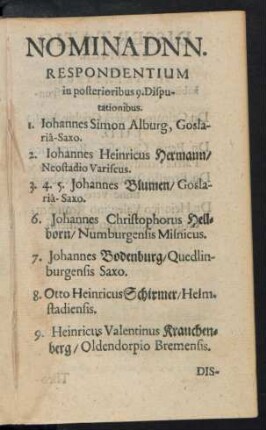 NOMINA DNN.
RESPONDENTIUM
in posterioribus 9. Dispu-
tationibus.
1. Iohannes Simon Alburg, Gosla-
riâ-Saxo.
2. Iohannes Heinricus Hermann/
Neostadio Variscus.
3. 4. 5. Johannes Blumen/ Gosla-
riâ-Saxo.
6. Johannes Christophorus Heil-
born/ Numburgensis Misnicus.
7. Johannes Bodenburg/ Quedlin-
burgensis Saxo.
8. Otto Heinricus Schirmer/ Helm-
stadiensis.
9. Heinricus Valentinus Krauchen-
berg/ Oldendorpio Bremensis.
DIS-